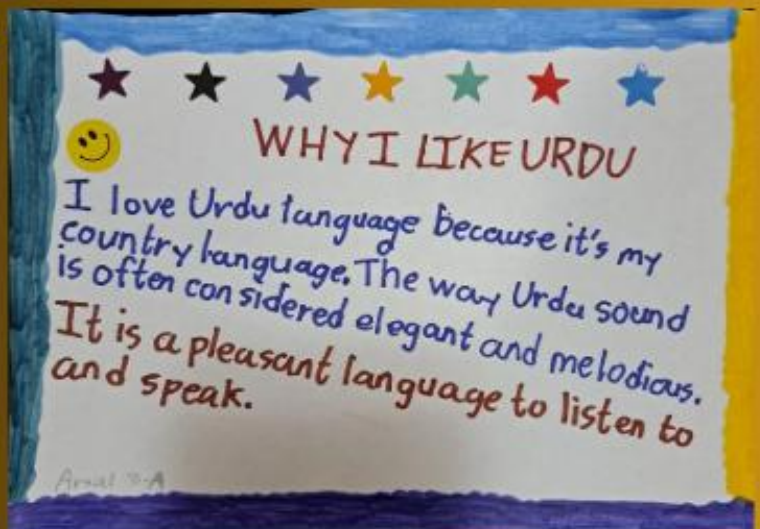 WHY I LIKE URDU
I love Urdu language because it's my
country language. The way Urdu sound
is often considered elegant and melodious.
It is a pleasant language to listen to
and speak.